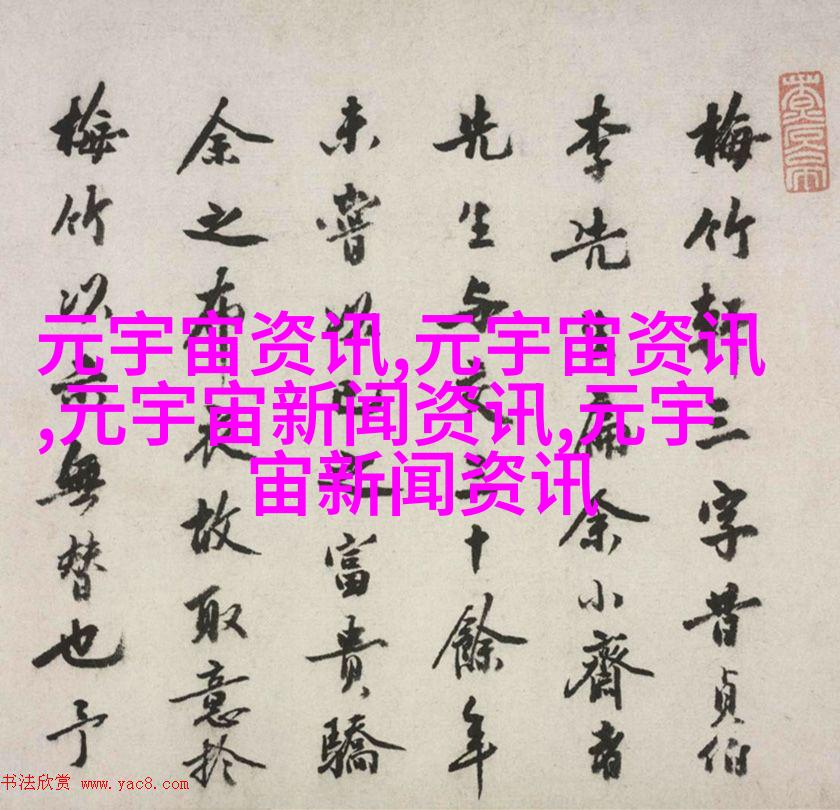 梅竹軒三字昔貞伯
李先生扁余小齋者
先生与交三十餘年
未嘗以富貴驕
余之布衣故取意於
梅竹以示無替也予
元宇宙资讯,元宇宙资讯
,元宇宙新闻资讯,元宇
宙新闻资讯
书法欣赏 www.yac8.com